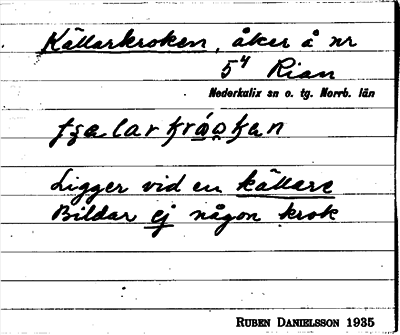 Källarkroken, åker å nr
5⁴ Rian
Nederkalix sn o. tg. Norrb. län
Ligger vid en källare
Bildar ej någon krok
RUBEN DANIELSSON 1935